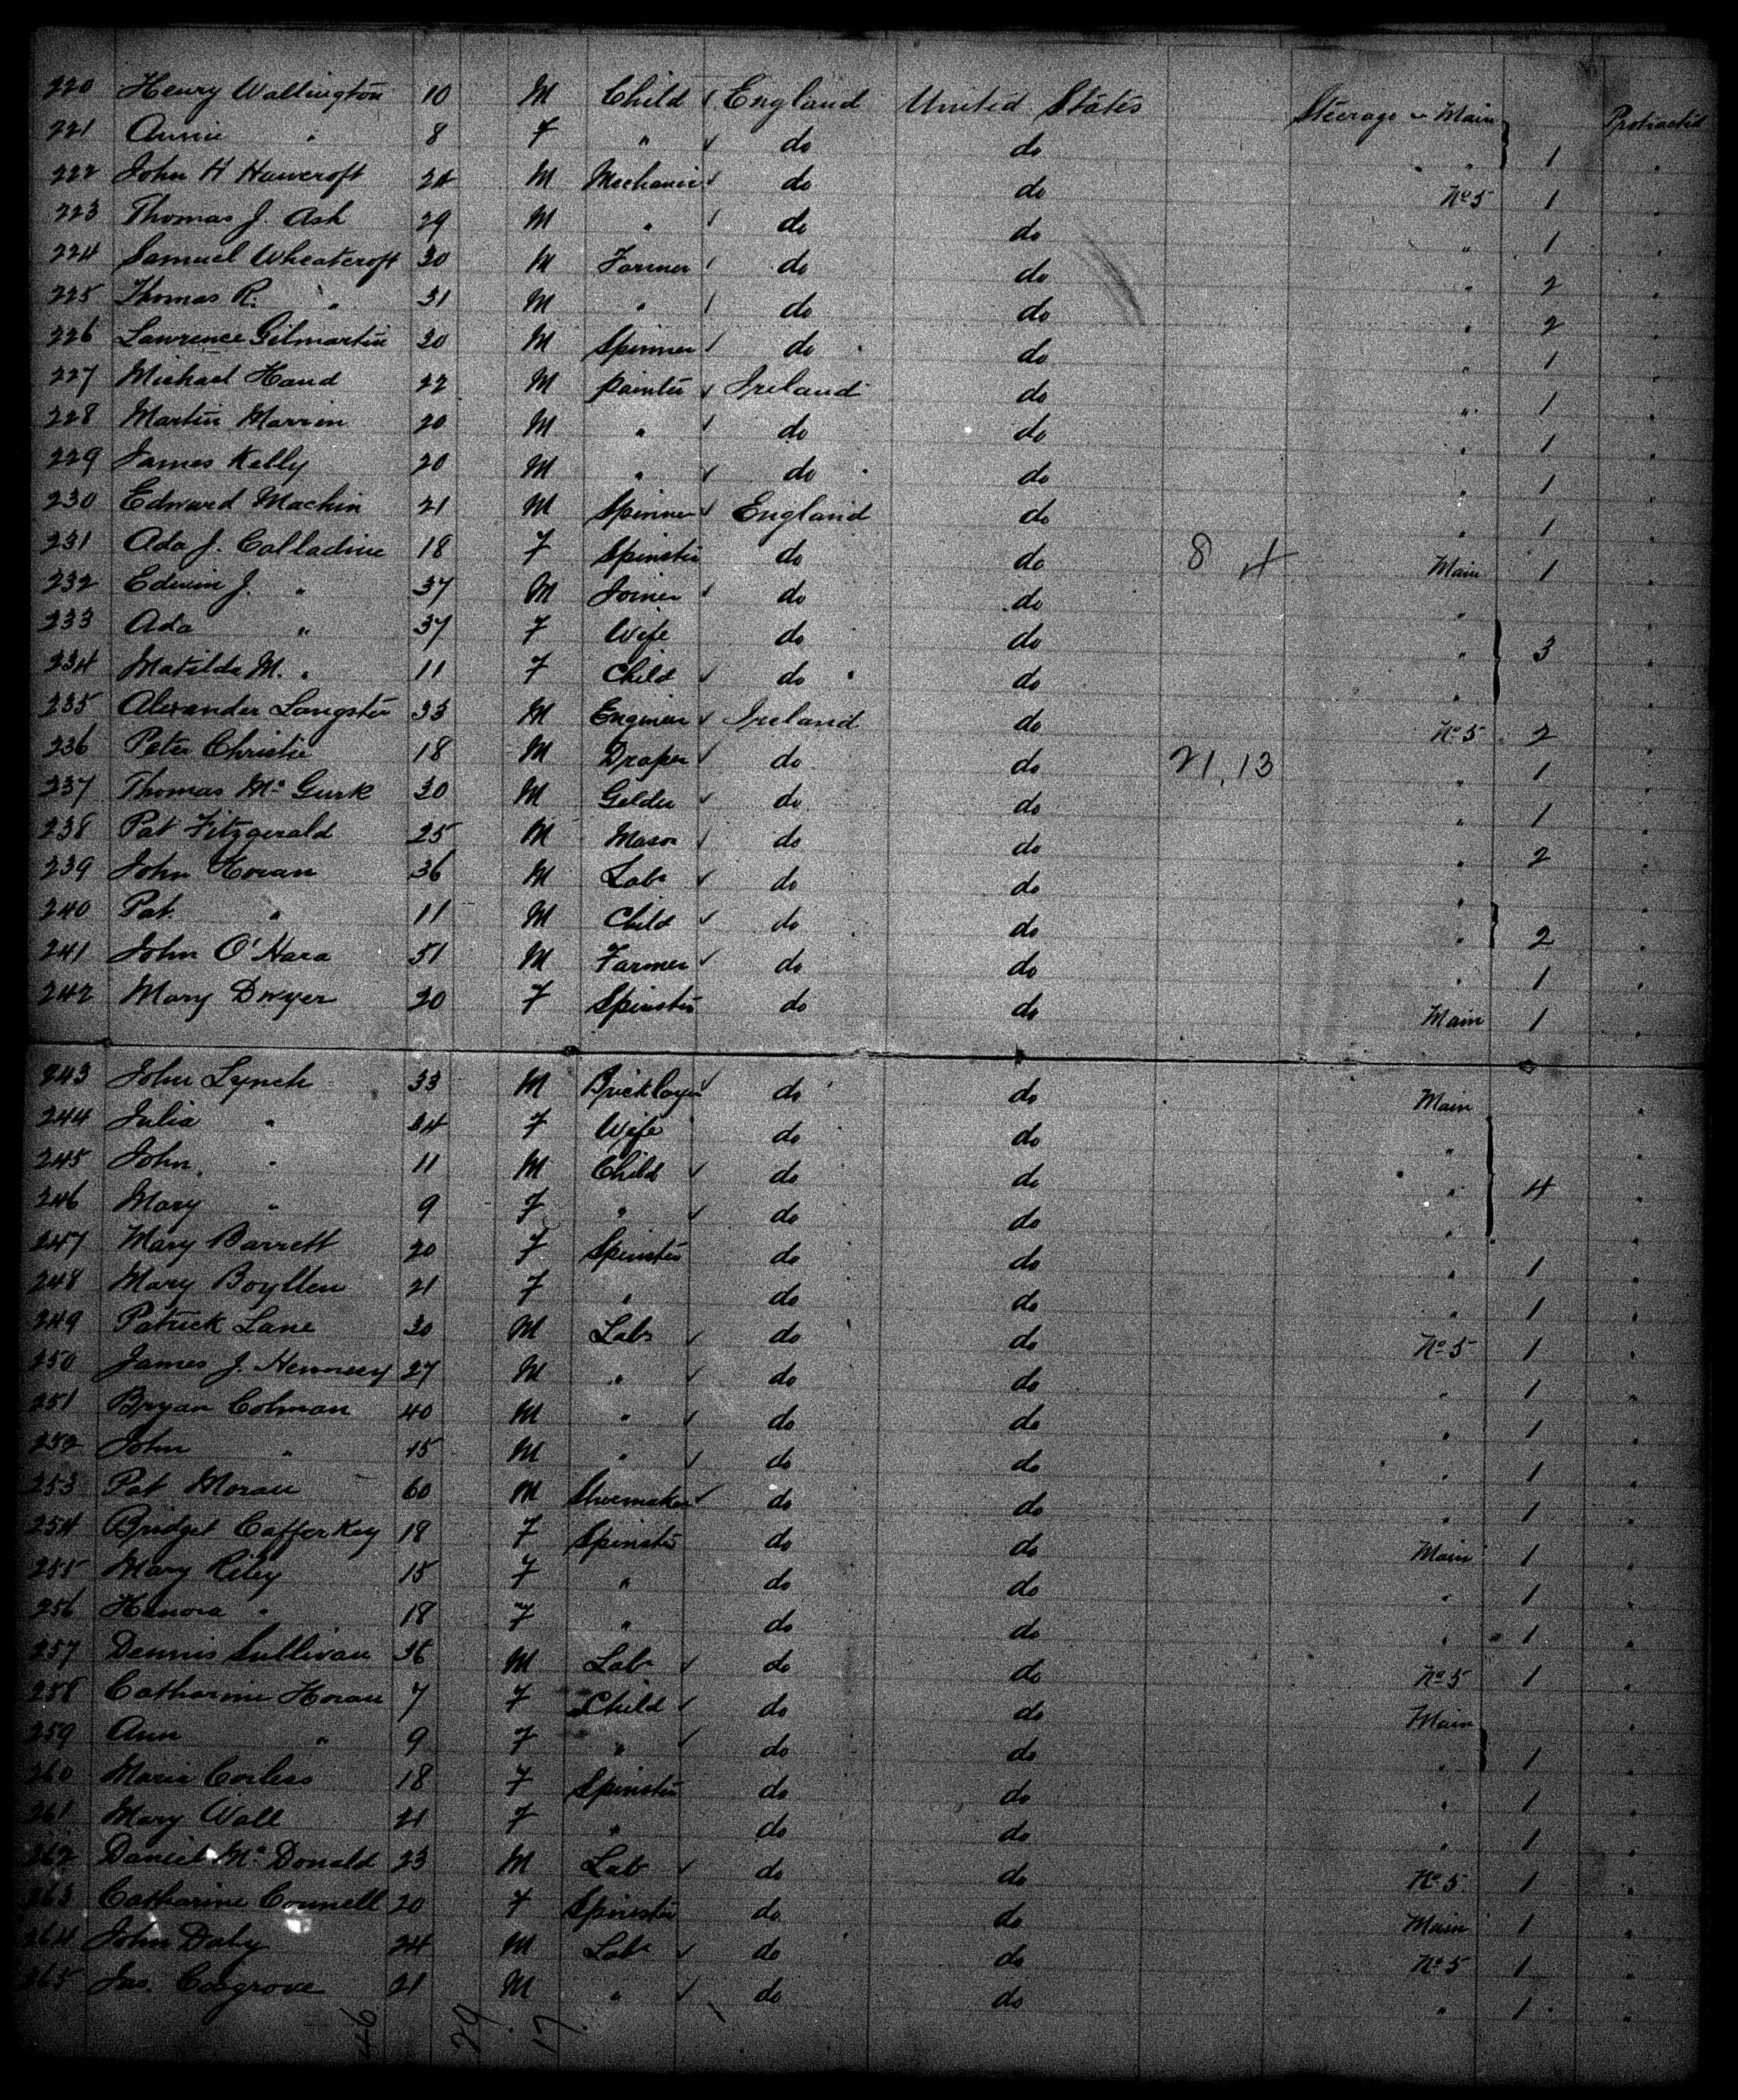 220 Henry Wallington 10 M Child England United States Steerage Main Protracted
221 Annie " 8 F " do do " 1 "
222 John H Hawcroft 24 M Mechanic do do No 5 1 "
223 Thomas J. Ash 29 M " do do " 1 "
224 Samuel Wheatcroft 30 M Farmer do do " 2 "
225 Thomas R. " 31 M " do do " 2 "
226 Lawrence Gilmartin 30 M Spinner do do " 1 "
227 Michael Hand 22 M painter Ireland do " 1 "
228 Martin Marren 20 M " do do " 1 "
229 James Kelly 20 M " do do " 1 "
230 Edward Machin 21 M Spinner England do " 1 "
231 Ada J. Calladine 18 F Spinster do do 8 4 Main 1 "
232 Edwin J. " 37 M Joiner do do "
233 Ada " 37 F Wife do do " 3 "
234 Matilda M. " 11 F Child do do " "
235 Alexander Langster 33 M Engineer Ireland do No 5 2 "
236 Peter Christie 18 M Draper do do 21,13 " 1 "
237 Thomas Mc Gurk 30 M Gelder do do " 1 "
238 Pat Fitzgerald 25 M Mason do do " 2 "
239 John Horan 36 M Labr do do " "
240 Pat " 11 M Child do do " 2 "
241 John O'Hara 51 M Farmer do do " 1 "
242 Mary Dwyer 20 F Spinster do do Main 1 "
243 John Lynch 33 M Bricklayer do do Main "
244 Julia " 34 F Wife do do " "
245 John " 11 M Child do do " 4 "
246 Mary " 9 F " do do " "
247 Mary Barrett 20 F Spinster do do " 1 "
248 Mary Boyllen 21 F " do do " 1 "
249 Patrick Lane 30 M Labr do do No 5 1 "
250 James J. Hennesy 27 M " do do " 1 "
251 Bryan Colman 40 M " do do " 1 "
252 John " 15 M " do do " 1 "
253 Pat Moran 60 M Shoemaker do do " 1 "
254 Bridget Cafferkey 18 F Spinster do do Main 1 "
255 Mary Riley 15 F " do do " 1 "
256 Hanora " 18 F " do do " 1 "
257 Dennis Sullivan 36 M Labr do do No 5 1 "
258 Catharine Horan 7 F Child do do Main "
259 Ann " 9 F " do do " 1 "
260 Maria Corless 18 F Spinster do do " 1 "
261 Mary Wall 21 F " do do " 1 "
262 Daniel Mc Donald 23 M Labr do do No 5 1 "
263 Catharine Connell 20 F Spinster do do Main 1 "
264 John Daly 24 M Labr do do No 5 1 "
265 Jas. Cosgrove 21 M " do do " 1 "
46 29 17